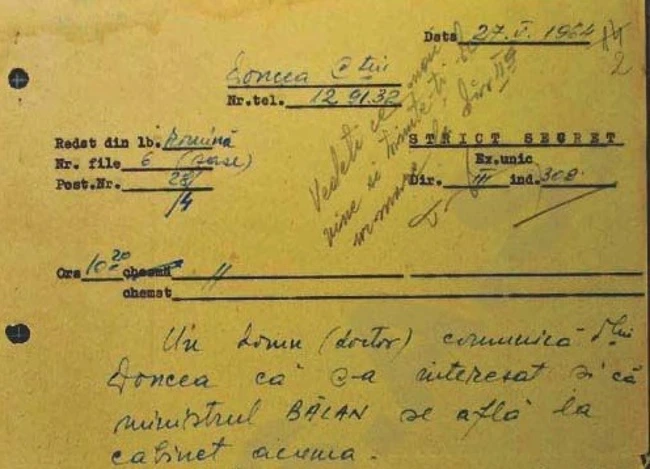 Data 27.V. 1964
Doncea C-tin
Nr.tel. 12 91.32
Redat din lb. Romînă
Nr. file 6 (șase)
Post.Nr. 28/
/4
14
2
STRICT SECRET
Ex.unic
Dir. III ind. 308
Vedeți ce mai
vine și trimiteți
Ora 10 20 chemă "
chemat
Un domn (doctor) comunică d-lui
Doncea că s-a interesat și că
ministrul BĂLAN se află la
cabinet acuma.